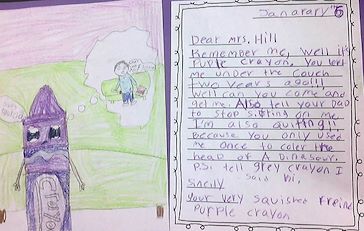 Janarary 6
Dear Mrs. Hill
Remember me, well it's
Purple crayon, you left
me under the couch
two years ago!!!
Well can you come and
get me. Also tell your Dad
to stop sitting on me.
I'm also quiting!!
because you only used
me once to coler the
head of A Dinasour.
P.S. tell grey crayon I
said hi,
Your very squished Freind
Purple crayon
crayon